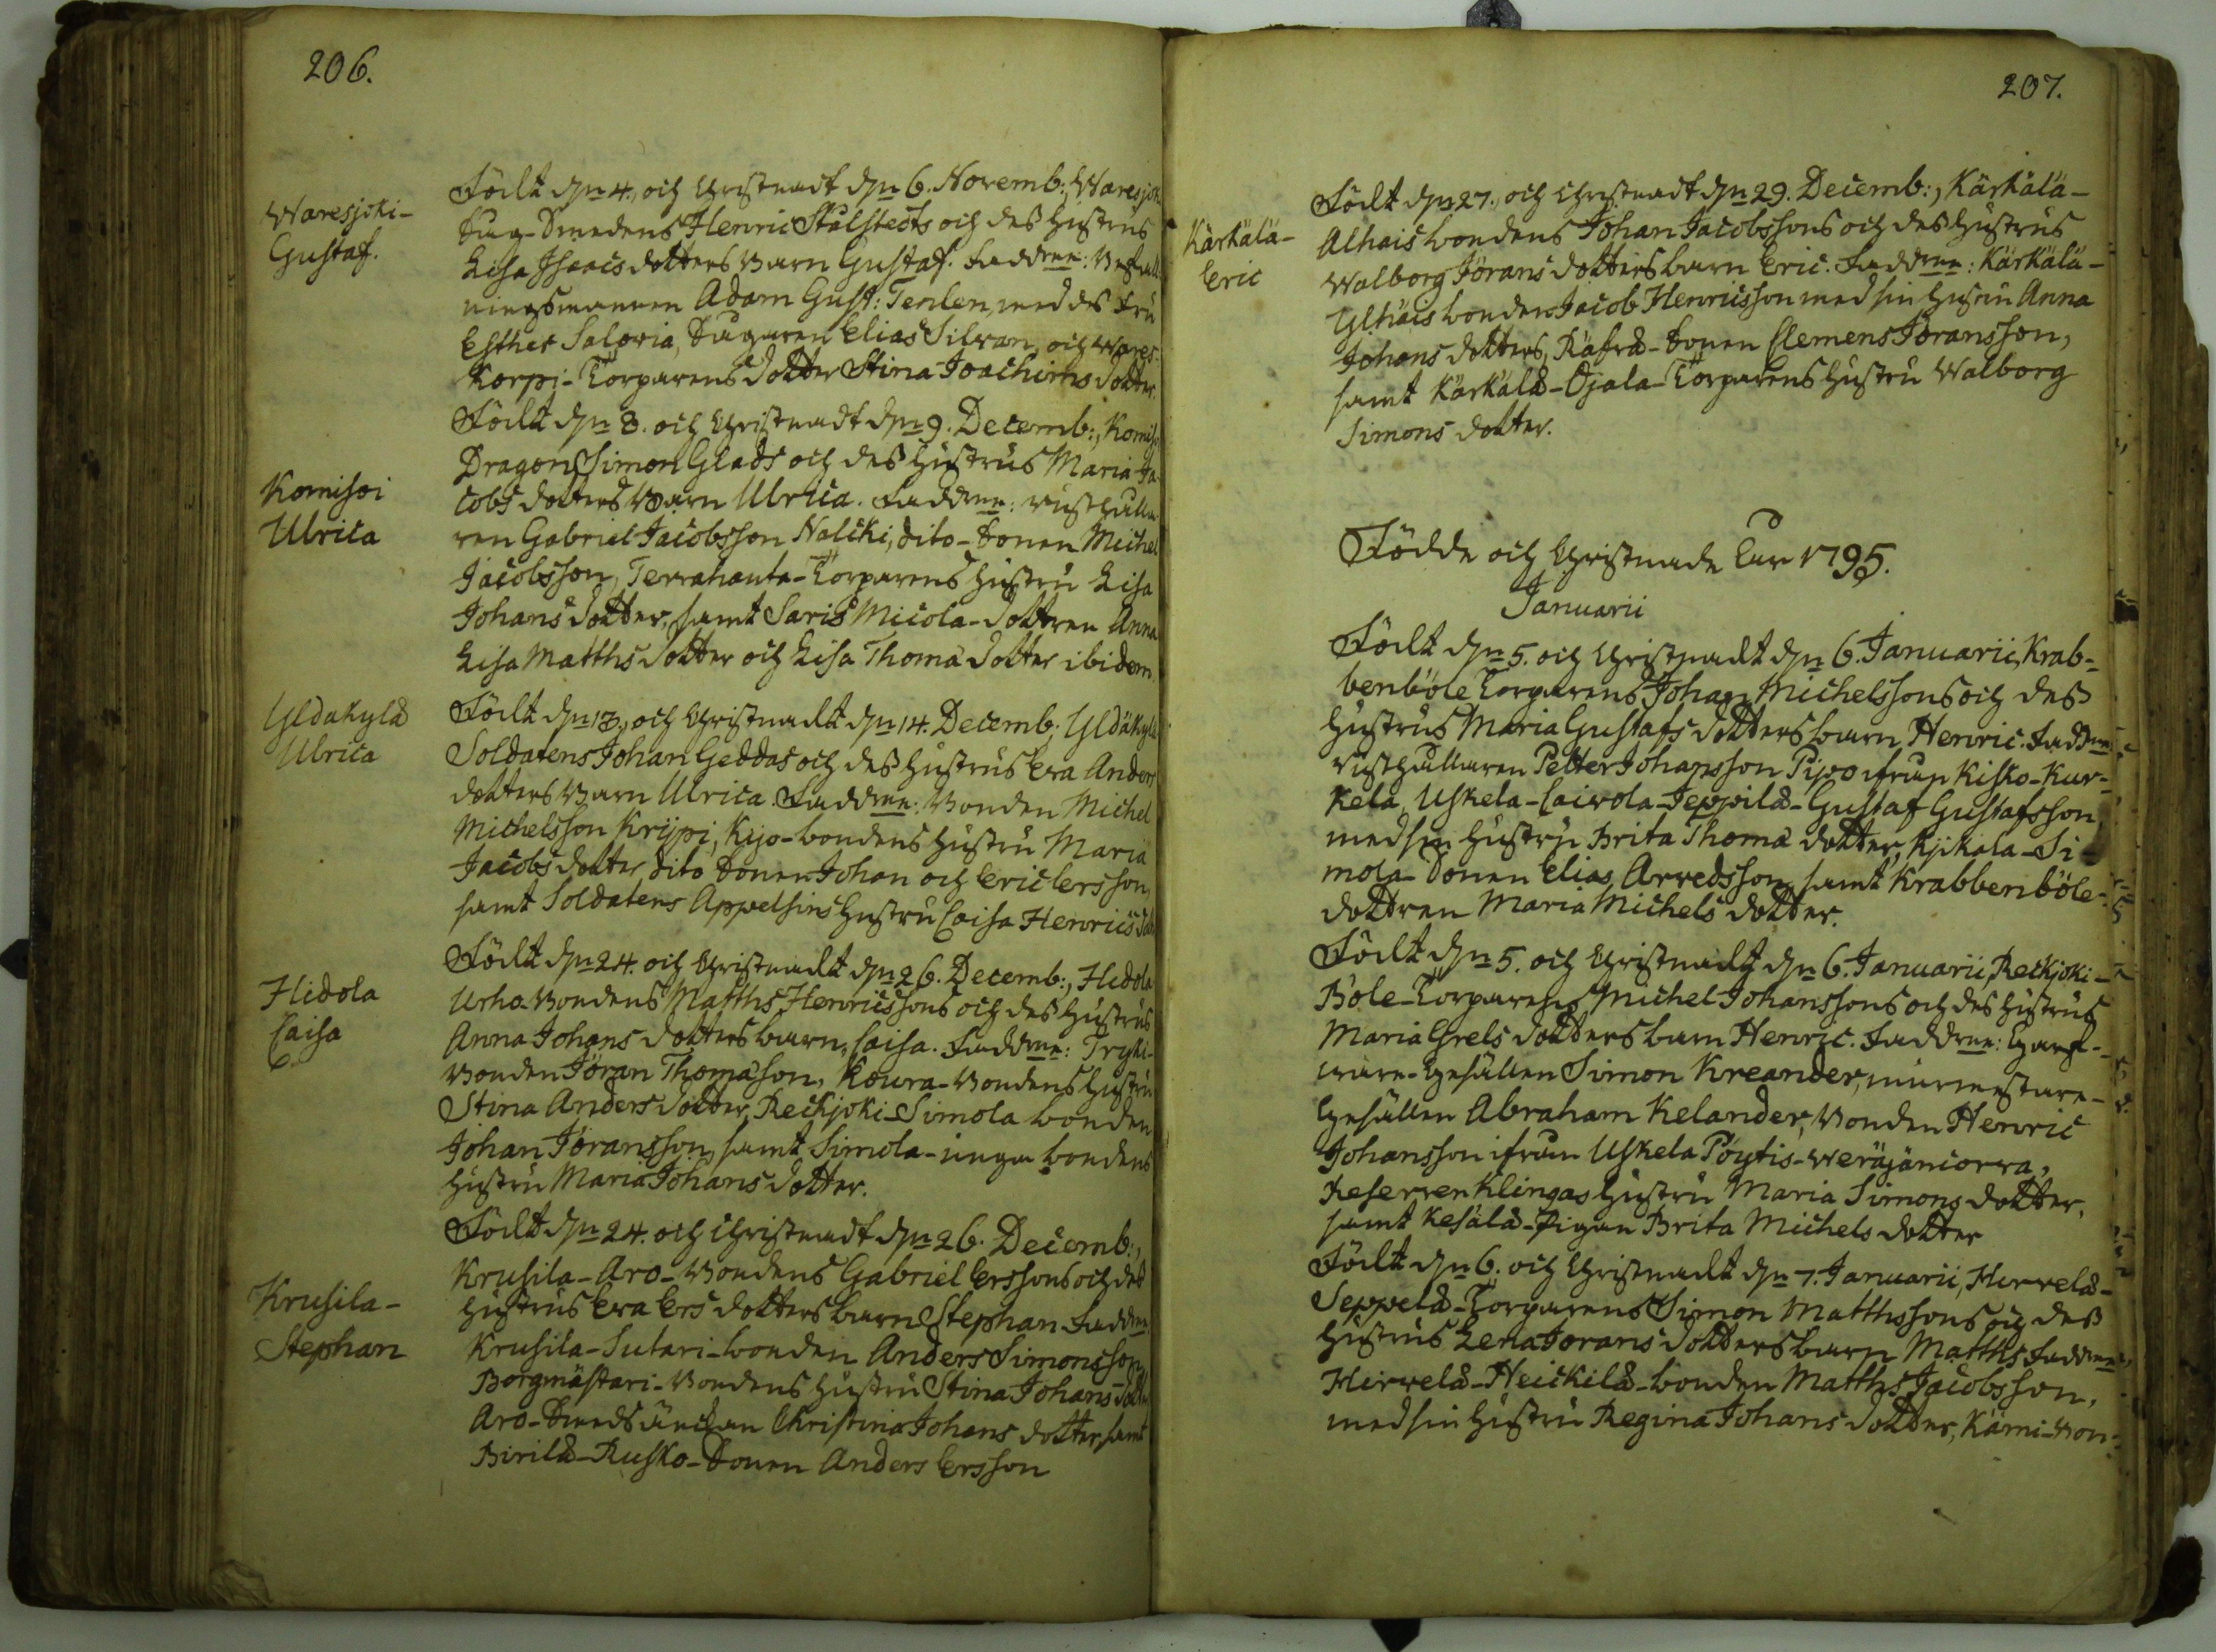 206.
Waresjoki-
Gustaf.
Födt dn 4., och Christnadt dn 6. Novemb:, Waresjoki
Såg-Smedens Henric Stålstedts och des Hustrus
Lisa Isaacs dotters Barn Gustaf. Faddrar: Befall-
ningsmannen Adam Gust: Tenlen, med des Fru
Esther Saloria, Sågaren Elias Silvan, och Wares-
Korpi-Torparens dotter Stina Joachims dotter.
Komisoi
Ulrica
Födt dn 8. och Christnadt dn 9. Decemb:, Komisoi
Dragons Simon Glads och des Hustrus Maria Ja-
cobs dotters Barn Ulrica. Faddrar: rusthålla-
ren Gabriel Jacobsson Nalcki, dito-Sonen Michel
Jacobsson, Terrahauta-Torparens Hustru Lisa
Johans dotter, samt Saris Micola-dottren Anna
Lisa Matths dotter och Lisa Thomæ dotter ibidem.
Yldäkylä
Ulrica
Födt dn 13., och Christnadt dn 14. Decemb; Yldäkylä
Soldatens Johan Geddas och des Hustrus Eva Anders
dotters Barn Ulrica. Faddrar: Bonden Michel
Michelsson Krijpi, Kijo-bondens Hustru Maria
Jacobs dotter, dito Sonen Johan och Eric Ersson,
samt Soldatens Appelsins Hustru Caisa Henrics dotter
Hidola
Caisa
Födt dn 24. och Christnadt dn 26. Decemb:, Hidola
Urho-Bondens Matths Henricssons och des Hustrus
Anna Johans dotters barn, Caisa. Faddrar: Tryki-
Bonden Jöran Thomæson, Koura-Bondens Hustru
Stina Anders dotter, Reckjoki Simola bonden
Johan Jöransson, samt Simola-unga bondens
Hustru Maria Johans dotter.
Krusila-
Stephan
Födt dn 24. och Christnadt dn 26. Decemb:,
Krusila-Aro-Bondens Gabriel Erssons och des
Hustrus Eva Ers dotters barn Stephan. Faddrar
Krusila-Sutari-bonden Anders Simonsson,
Borgmästari-Bondens Hustru Stina Johans dotter
Aro-Smeds änckan Christina Johans dotter, samt
Birilä-Rusko-Sonen Anders Ersson
207.
Kärkälä-
Eric
Födt dn 27., och Christnadt dn 29. Decemb:, Kärkälä-
Alhais bondens Johan Jacobssons och des Hustrus
Walborg Jörans dotters barn Eric. Faddrar: Kärkälä-
Ylhäis bonden Jacob Henricsson med sin Hustru Anna
Johans dotters, Räfvä-Sonen Clemens Jöransson,
samt Kärkälä-Ojala-Torparens Hustru Walborg
Simons dotter.
Födde och Christnade Åhr 1795.
Januarii
Födt dn 5. och Christnadt dn 6. Januarii, Krab-
benböle Torparens Johan Michelssons och des
Hustrus Maria Gustafs dotters barn, Henric. Faddrar
rusthållaren Petter Johansson Pijoo ifrån Kisko-Kur-
kela, Uskela-Caivola-Jeppilä-Gustaf Gustafsson,
med sin Hustru Brita Thomæ dotter, Kjikala-Si-
mola Sonen Elias Arvedsson, samt Krabbenböle-
dottren Maria Michels dotter.
Födt dn 5. och Christnadt dn 6. Januarii, Reckjoki-
Böle-Torparens Michel Johanssons och des Hustrus
Maria Grels dotters barn Henric. Faddrar: Garf-
vare-Gesällen Simon Kreander, murmestare-
Gesällen Abraham Kelander, Bonden Henric
Johansson ifrån Uskela Pöytis-Weräjäncorva,
Reserven Klingas Hustru Maria Simons dotter,
samt Kesälä-Pigan Brita Michels dotter
Födt dn 6. och Christnadt dn 7. Januarii, Hirvelä-
Seppelä-Torparens Simon Matthssons och des
Hustrus Lena Jörans dotters barn Matths. Faddrar,
Hirvelä-Heickilä-bonden Matths Jacobsson,
med sin Hustru Regina Johans dotter, Kärni-Bon-